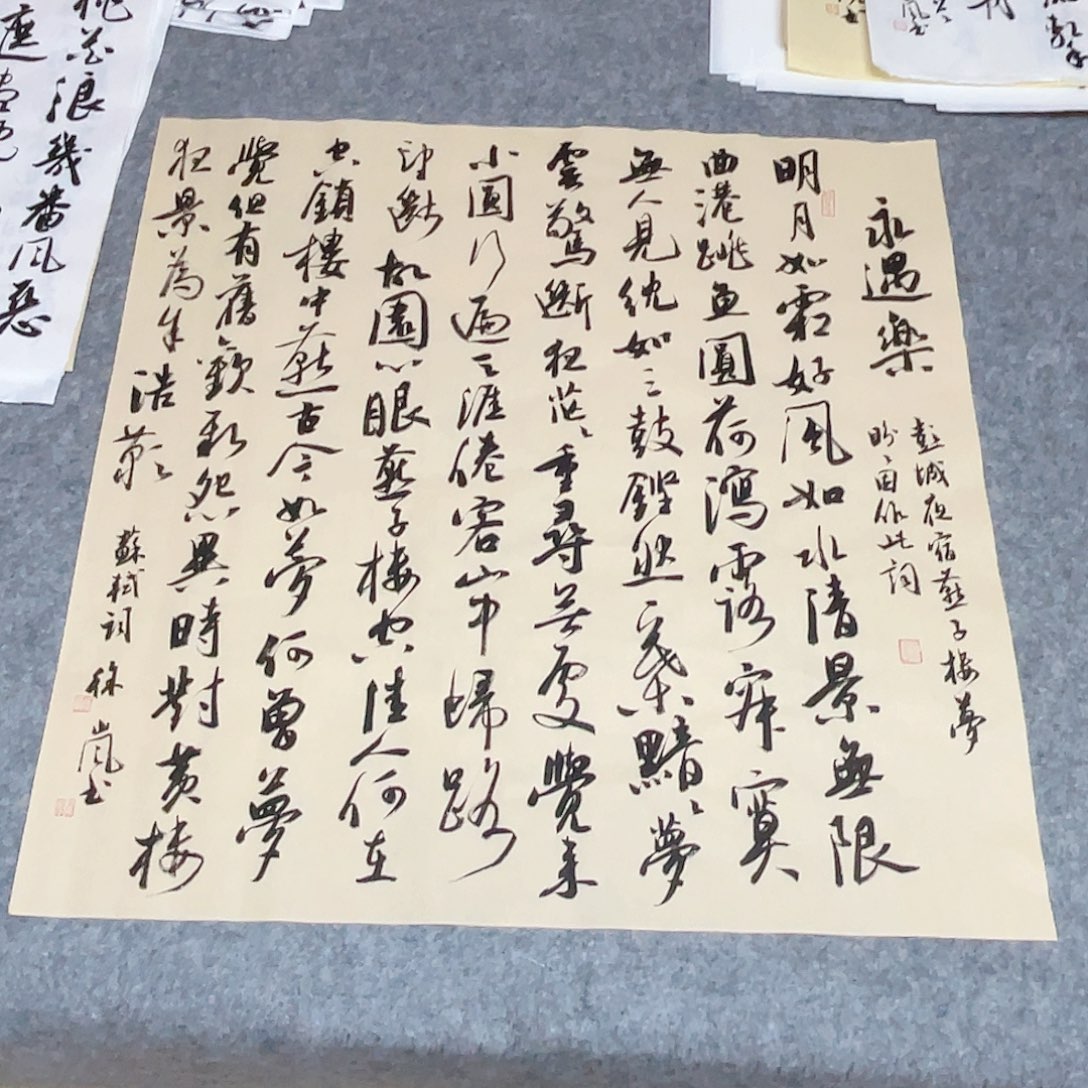 永遇樂
彭城夜宿燕子楼夢
盼盼因作此詞
明月如霜好風如水清景無限
曲港跳魚圓荷瀉露寂寞
無人見紞如三鼓鏗然一葉黯黯夢
雲驚斷夜茫茫重尋無處覺來
小園行遍天涯倦客山中歸路
望斷故園心眼燕子楼空佳人何在
空鎖樓中燕古今如夢何曾夢
覺但有舊歡新怨異時對黄楼
夜景為余浩歎
蘇軾詞 徐嵐书
花浪幾番风惡